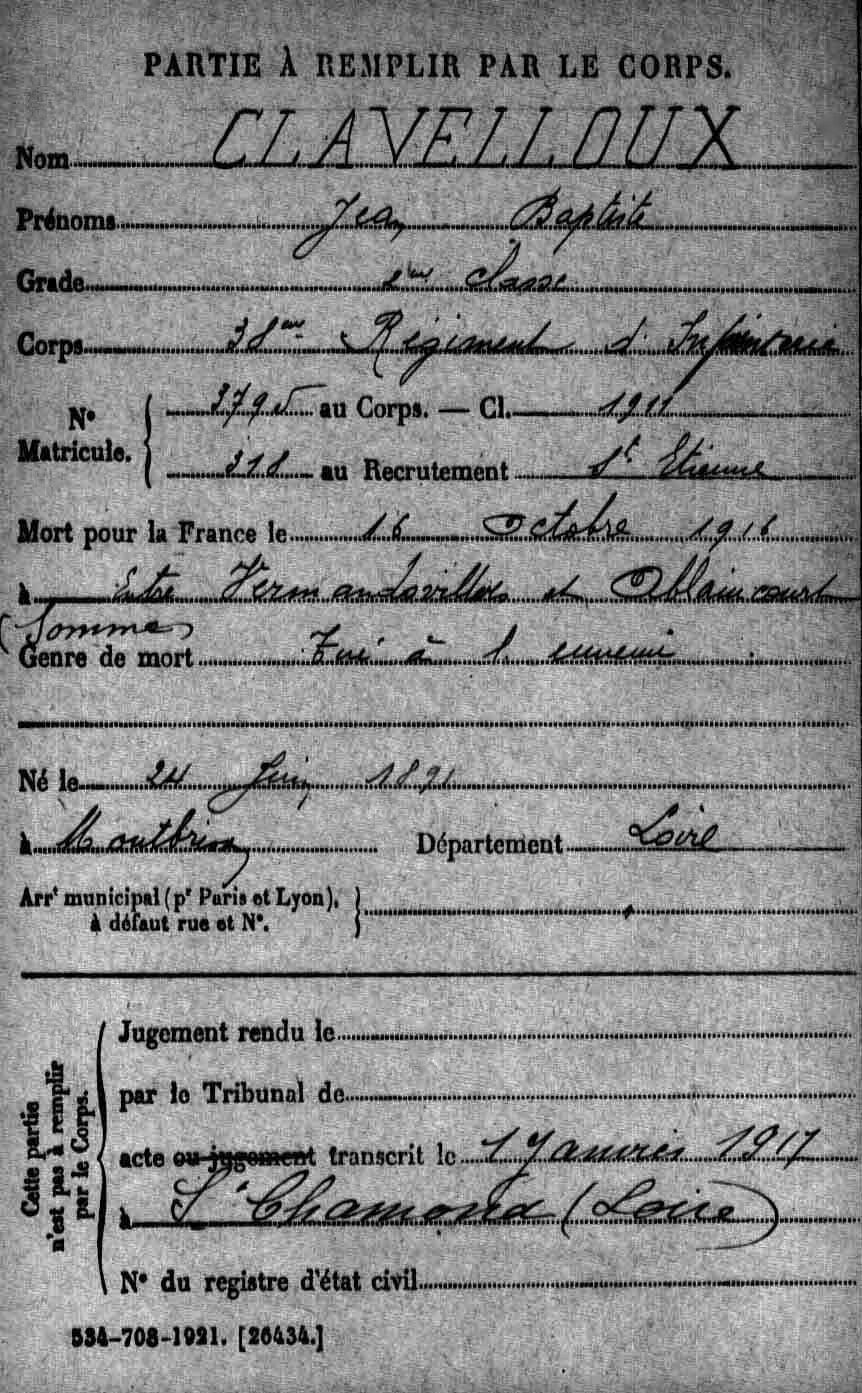 PARTIE À REMPLIR PAR LE CORPS.
Nom CLAVELLOUX
Prénoms Jean Baptiste
Grade 2me classe
Corps 38me Régiment d'Infanterie
N° Matricule. 3795 au Corps. — Cl. 1911
318 au Recrutement St. Etienne
Mort pour la France le 16 Octobre 1916
à Entre Vermandovillers et Ablaincourt
(Somme)
Genre de mort Tué à l'ennemi
Né le 24 Juin 1891
à Montbrison Département Loire
Arrt municipal (pr Paris et Lyon),
à défaut rue et N°.
Cette partie n'est pas à remplir par le Corps.
Jugement rendu le
par le Tribunal de
acte ou jugement transcrit le 17 Janvier 1917
à St Chamond (Loire)
N° du registre d'état civil
534-708-1921. [26434.]